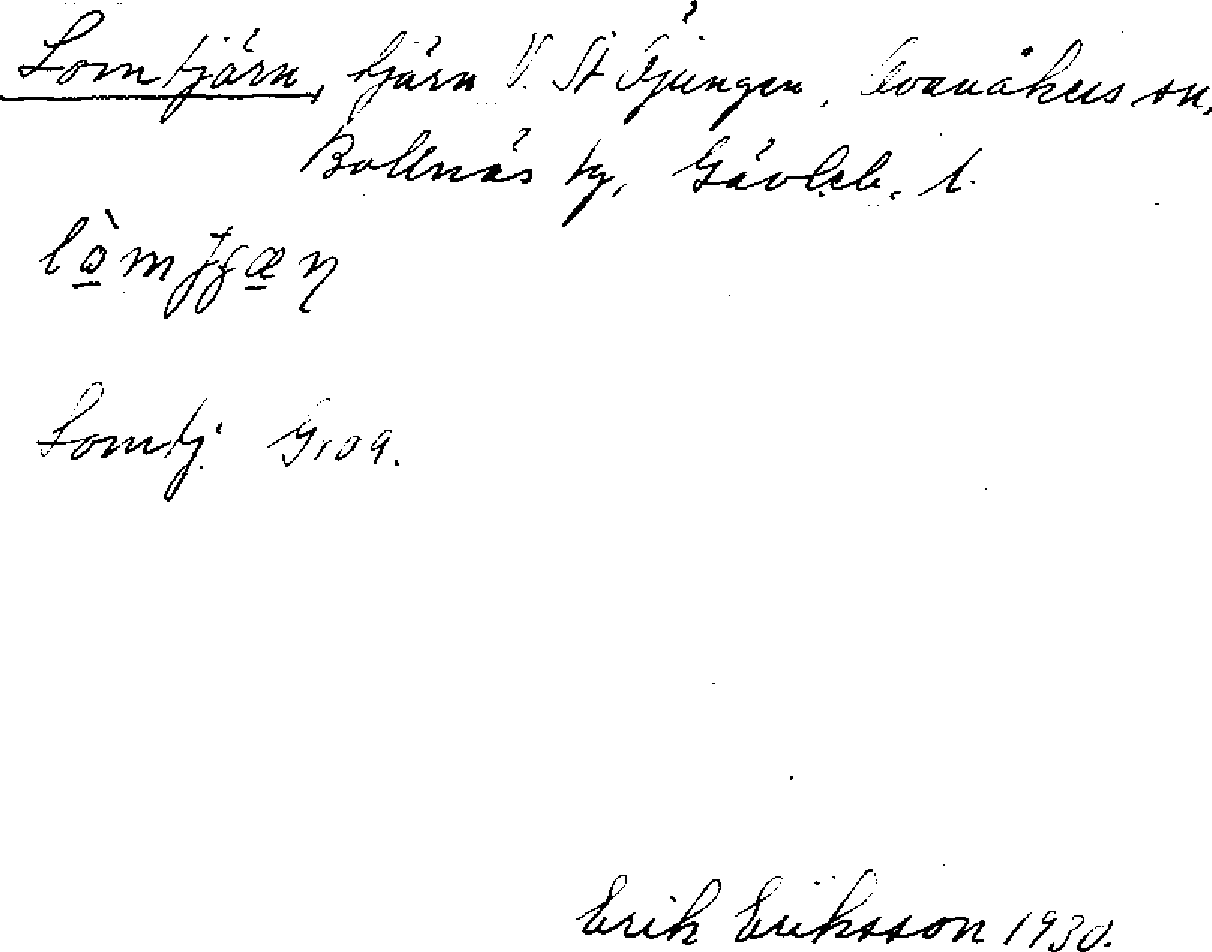 Lomtjärn, tjärn V. St Öjungen, Ovanåkers sn,
Bollnäs tg, Gävleb. l.
lòmtjæɳ
Lomtj. G 109.
Erik Eriksson 1930.